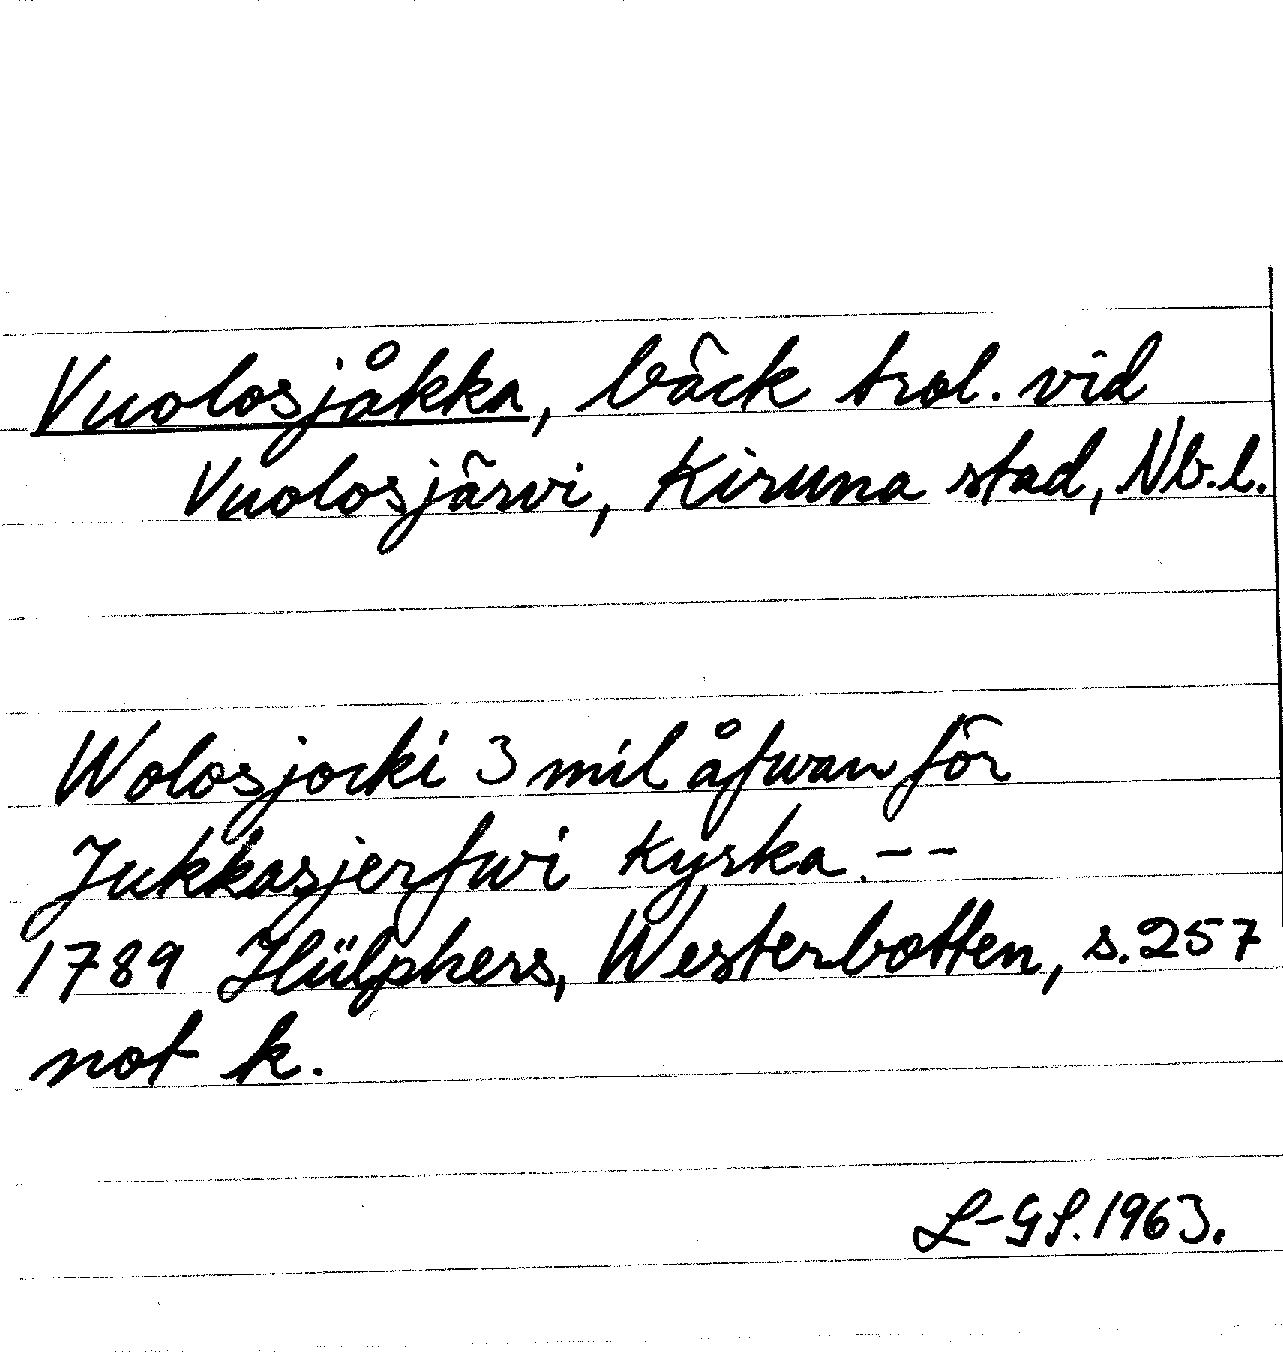 Vuolosjåkka, bäck trol. vid
Vuolosjärvi, Kiruna stad, Nb.l.
Wolosjocki 3 mil åfwan för
Jukkasjerfwi Kyrka. --
1789 Hülphers, Westerbotten, s.257
not k.
L-GS. 1963.